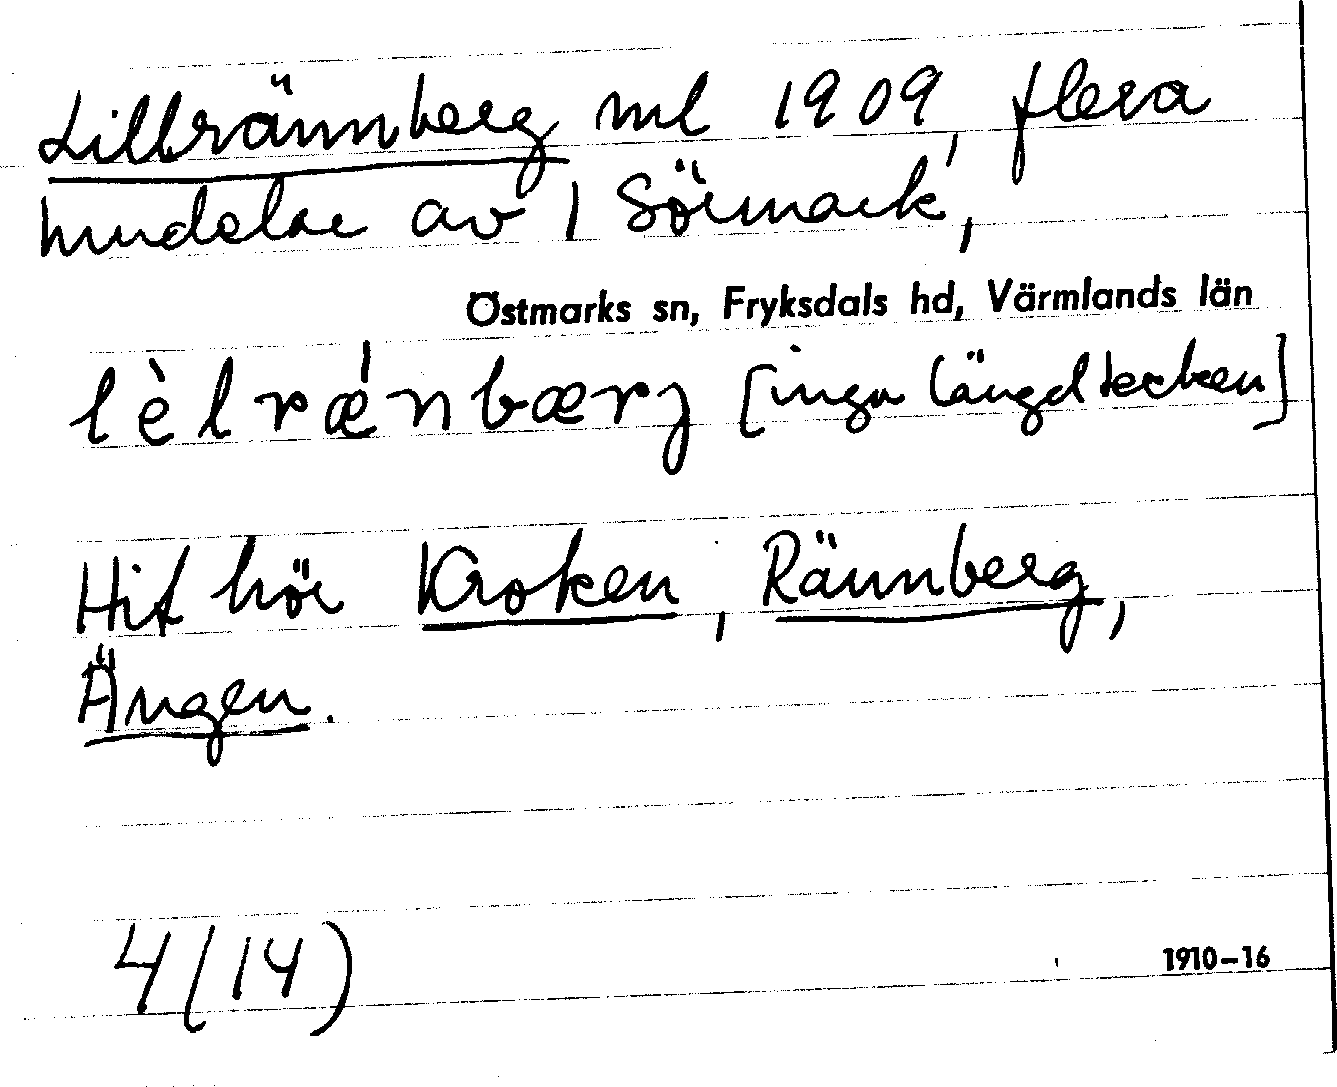 Lillrännberg ml 1909, flera
hmdelar av 1 Sörmark,
Östmarks sn, Fryksdals hd, Värmlands län
lèlrǽnbærj [inga längdtecken]
Hit hör Kroken, Rännberg,
Ängen.
4(14)
1910–16